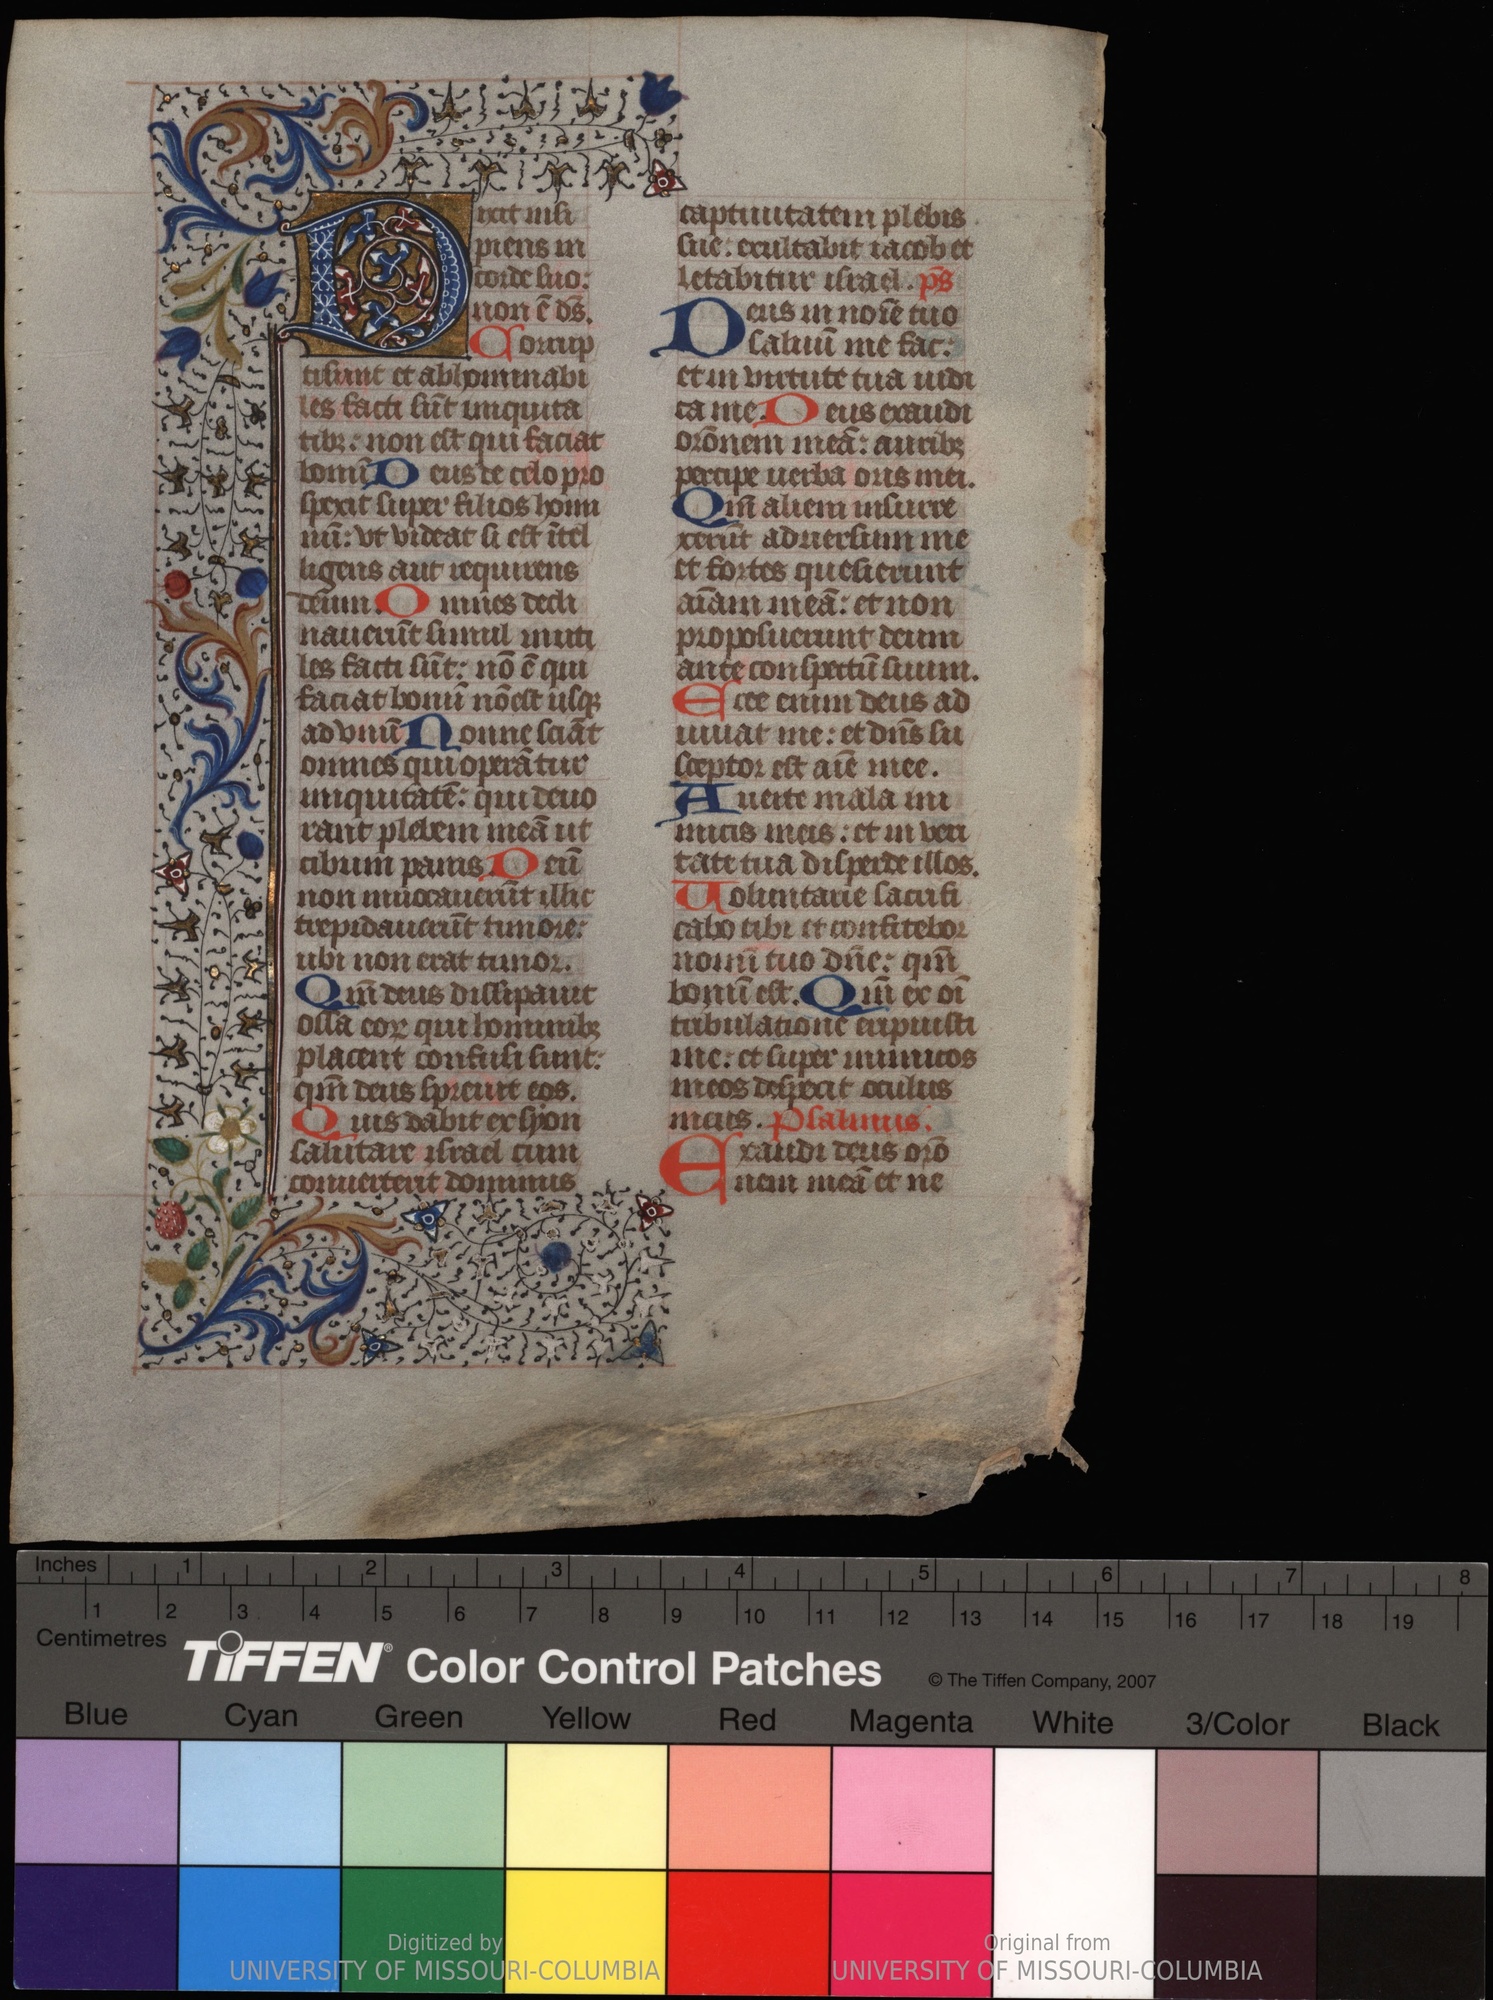 Dixit insi
piens in
corde suo:
non ē ds̄.
Corrup
ti sunt et abhominabi
les facti sūt iniquita
tibꝫ: non est qui faciat
bonū Deus de celo pro
spexit super filios homi
nū: vt videat si est ītel
ligens aut requirens
deum. Omnes decli
nauerūt simul inuti
les facti sūt: nō ē qui
faciat bonū nō est usqꝫ
ad vnū Nonne sciāt
omnes qui operātur
iniquitatē: qui deuo
rant plebem meā ut
cibum panis Deū
non inuocauerūt illic
trepidauerūt timore:
ubi non erat timor.
Qm̄ deus dissipauit
ossa eoꝝ qui hominibꝫ
placent confusi sunt:
qm̄ deus spreuit eos.
Quis dabit ex syon
salutare israel cum
conuerterit dominus
captiuitatem plebis
sue: exultabit iacob et
letabitur israel. ps̄
Deus in noīe tuo
saluū me fac:
et in virtute tua iudi
ca me. Deus exaudi
orōnem meā: auribꝫ
percipe uerba oris mei.
Qm̄ alieni insurre
xerūt aduersum me
et fortes quesierunt
aīam meā: et non
proposuerunt deum
ante conspectū suum.
Ecce enim deus ad
iuuat me: et dn̄s su
sceptor est aīe mee.
Auerte mala ini
micis meis: et in veri
tate tua disperde illos.
Uoluntarie sacrifi
cabo tibi et confitebor
nomī tuo dn̄e: qm̄
bonū est. Qm̄ ex oī
tribulatione eripuisti
me: et super inimicos
meos despexit oculus
meus. Psalmus.
Exaudi deus orō
nem meā et ne
Inches 1 2 3 4 5 6 7 8
1 2 3 4 5 6 7 8 9 10 11 12 13 14 15 16 17 18 19
Centimetres
TIFFEN® Color Control Patches © The Tiffen Company, 2007
Blue Cyan Green Yellow Red Magenta White 3/Color Black
Digitized by
UNIVERSITY OF MISSOURI-COLUMBIA
Original from
UNIVERSITY OF MISSOURI-COLUMBIA